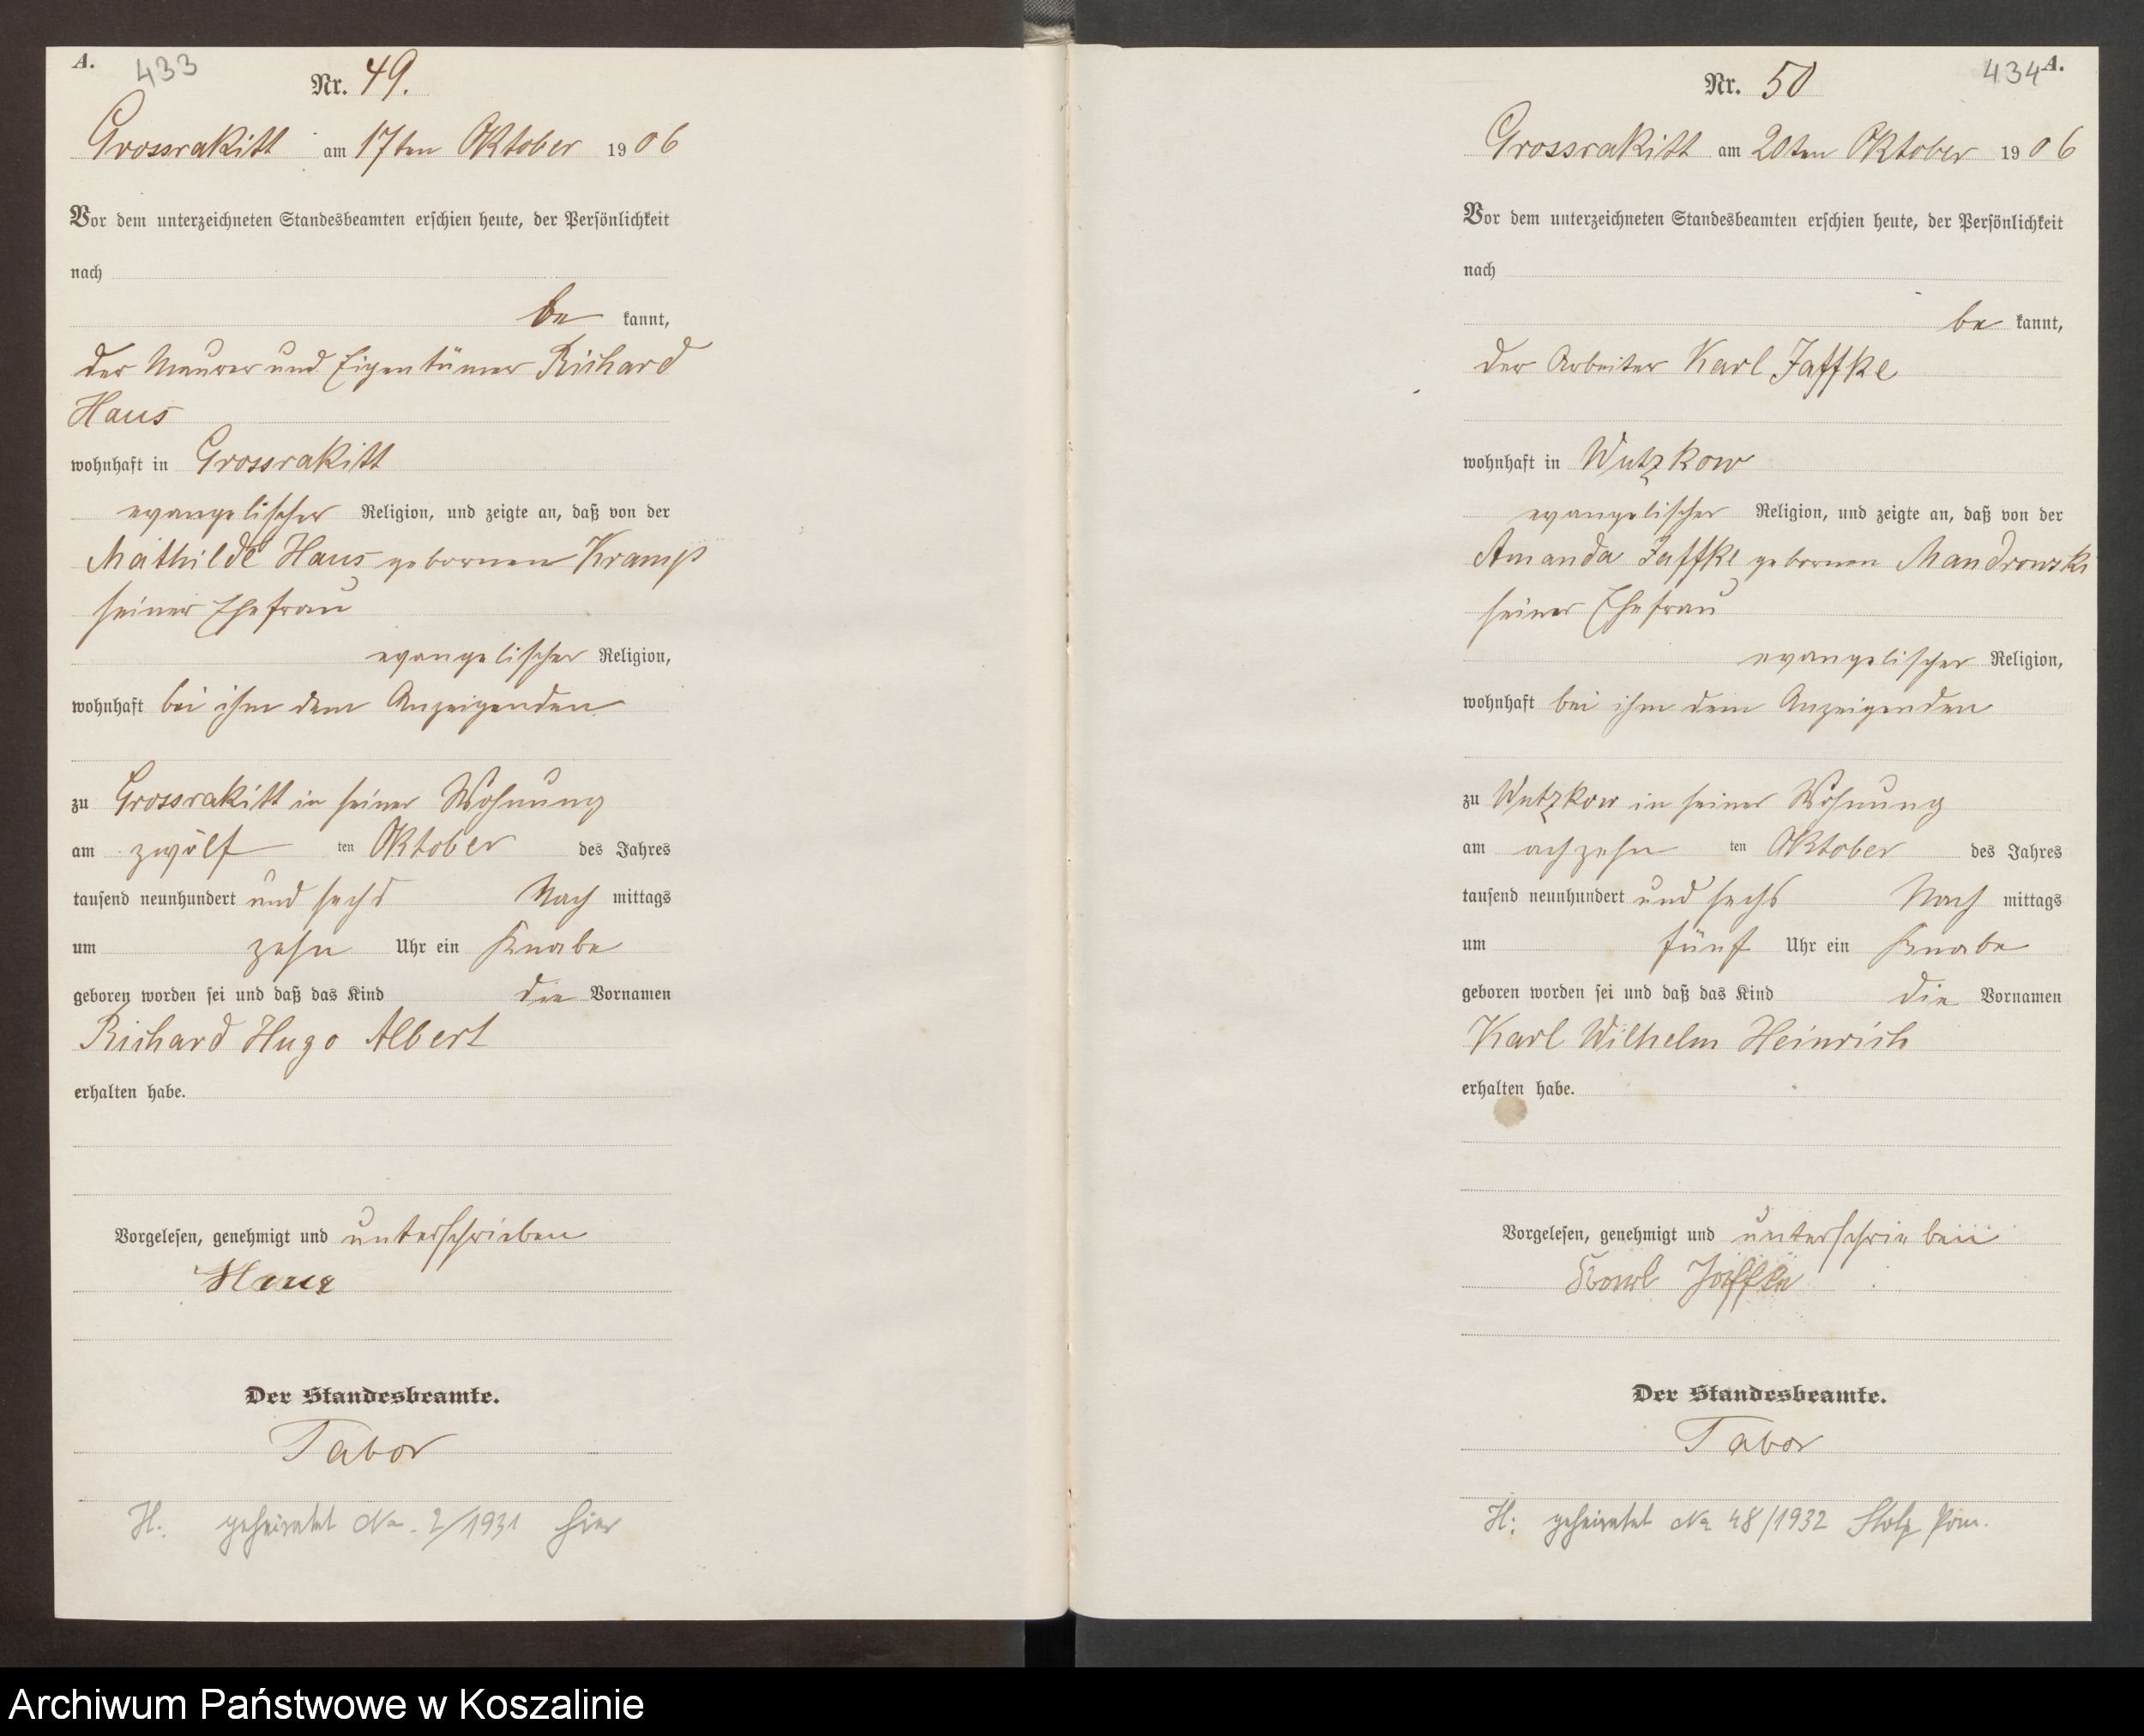 A.
433
Nr. 49.
Grossrakitt am 17ten Oktober 1906
Vor dem unterzeichneten Standesbeamten erschien heute, der Persönlichkeit
nach
be kannt,
der Maurer und Eigentümer Richard
Haus
wohnhaft in Grossrakitt
evangelischer Religion, und zeigte an, daß von der
Mathilde Haus gebornen Kramp
seiner Ehefrau
evangelischer Religion,
wohnhaft bei ihm dem Anzeigenden
zu Grossrakitt in seiner Wohnung
am zwölf ten Oktober des Jahres
tausend neunhundert und sechs Nach mittags
um zehn Uhr ein Knabe
geboren worden sei und daß das Kind die Vornamen
Richard Hugo Albert
erhalten habe.
Vorgelesen, genehmigt und unterschrieben
Haus
Der Standesbeamte.
Tabor
H. geheiratet No. 2/1931 hier
434 A.
Nr. 50
Grossrakitt am 20ten Oktober 1906
Vor dem unterzeichneten Standesbeamten erschien heute, der Persönlichkeit
nach
be kannt,
der Arbeiter Karl Jaffke
wohnhaft in Wutzkow
evangelischer Religion, und zeigte an, daß von der
Amanda Jaffke gebornen Mandrowski
seiner Ehefrau
evangelischer Religion,
wohnhaft bei ihm dem Anzeigenden
zu Wutzkow in seiner Wohnung
am achzehn ten Oktober des Jahres
tausend neunhundert und sechs Nach mittags
um fünf Uhr ein Knabe
geboren worden sei und daß das Kind die Vornamen
Karl Wilhelm Heinrich
erhalten habe.
Vorgelesen, genehmigt und unterschrieben
Karl Jaffke
Der Standesbeamte.
Tabor
H: geheiratet No 48/1932 Stolp Pom.
Archiwum Państwowe w Koszalinie